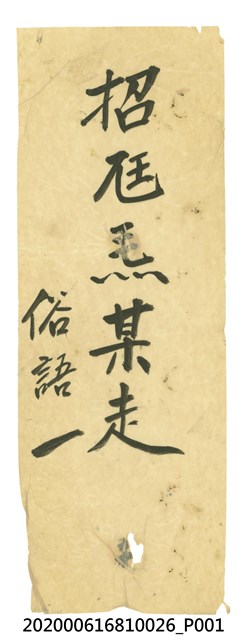 招尪𤆬某走
俗語一
202000616810026_P001